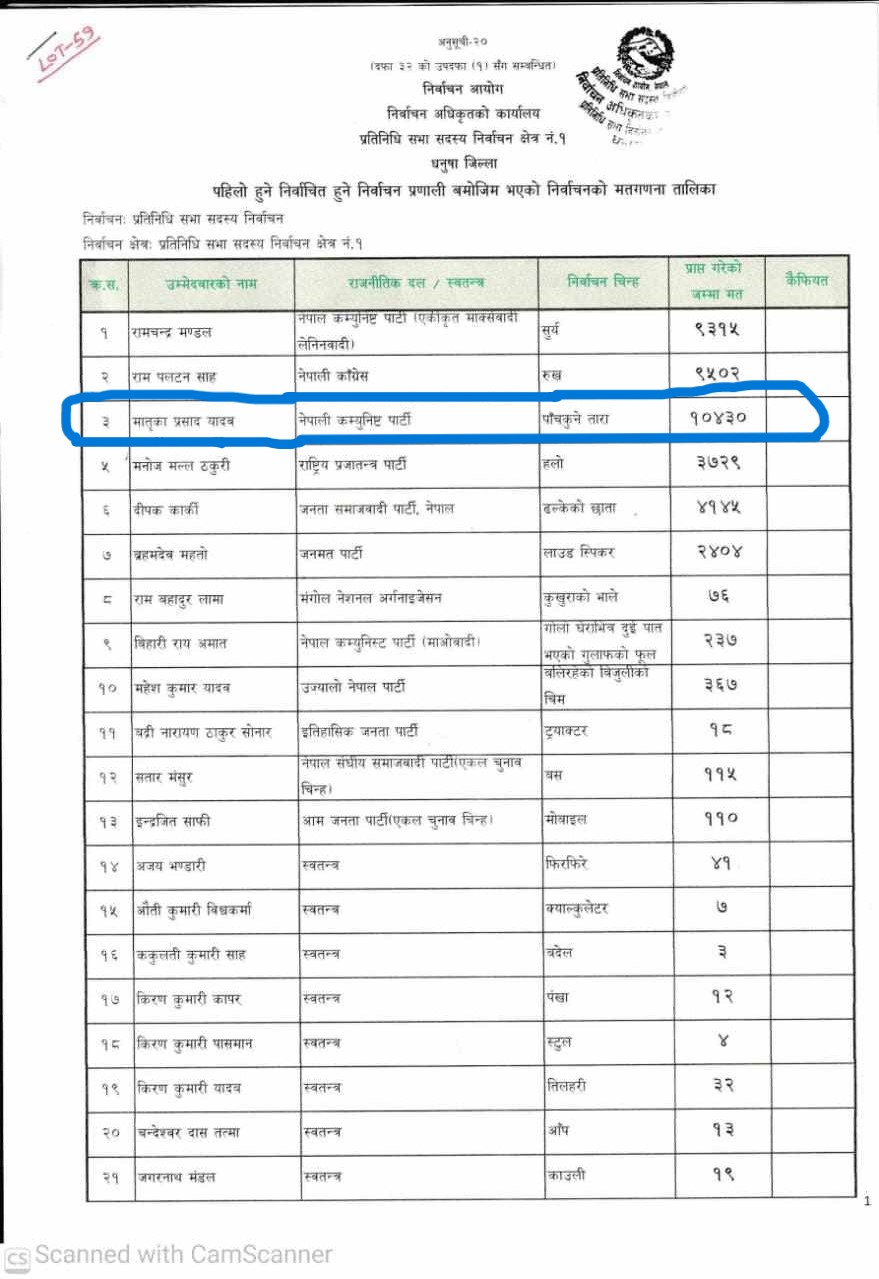 LOT-59
अनुसूची-२०
(दफा ३२ को उपदफा (१) सँग सम्बन्धित)
निर्वाचन आयोग
निर्वाचन अधिकृतको कार्यालय
प्रतिनिधि सभा सदस्य निर्वाचन क्षेत्र नं.१
धनुषा जिल्ला
पहिलो हुने निर्वाचित हुने निर्वाचन प्रणाली बमोजिम भएको निर्वाचनको मतगणना तालिका
निर्वाचनः प्रतिनिधि सभा सदस्य निर्वाचन
निर्वाचन क्षेत्रः प्रतिनिधि सभा सदस्य निर्वाचन क्षेत्र नं.१
क.स. उम्मेदवारको नाम राजनीतिक दल / स्वतन्त्र निर्वाचन चिन्ह प्राप्त गरेको जम्मा मत कैफियत
१ रामचन्द्र मण्डल नेपाल कम्युनिष्ट पार्टी (एकीकृत मार्क्सवादी लेनिनवादी) सुर्य ९३१५
२ राम पलटन साह नेपाली काँग्रेस रुख ९५०२
३ मातृका प्रसाद यादव नेपाली कम्युनिष्ट पार्टी पाँचकुने तारा १०४३०
५ मनोज मल्ल ठकुरी राष्ट्रिय प्रजातन्त्र पार्टी हलो ३७२९
६ दीपक कार्की जनता समाजवादी पार्टी, नेपाल ढल्केको छाता ४१४५
७ ब्रहमदेव महतो जनमत पार्टी लाउड स्पिकर २४०४
८ राम बहादुर लामा मंगोल नेशनल अर्गनाइजेसन कुखुराको भाले ७६
९ बिहारी राय अमात नेपाल कम्युनिस्ट पार्टी (माओवादी) गोलो घेराभित्र दुई पात भएको गुलाफको फूल २३७
१० महेश कुमार यादव उज्यालो नेपाल पार्टी बलिरहेको बिजुलीको चिम ३६७
११ बद्री नारायण ठाकुर सोनार इतिहासिक जनता पार्टी ट्र्याक्टर १८
१२ सतार मंसुर नेपाल संघीय समाजवादी पार्टी(एकल चुनाव चिन्ह) बस ११५
१३ इन्द्रजित साफी आम जनता पार्टी(एकल चुनाव चिन्ह) मोबाइल ११०
१४ अजय भण्डारी स्वतन्त्र फिरफिरे ४१
१५ औती कुमारी विश्वकर्मा स्वतन्त्र क्याल्कुलेटर ७
१६ ककुलती कुमारी साह स्वतन्त्र बदेल ३
१७ किरण कुमारी कापर स्वतन्त्र पंखा १२
१८ किरण कुमारी पासमान स्वतन्त्र स्टुल ४
१९ किरण कुमारी यादव स्वतन्त्र तिलहरी ३२
२० चन्देश्वर दास तत्मा स्वतन्त्र आँप १३
२१ जगरनाथ मंडल स्वतन्त्र काउली १९
1
CS Scanned with CamScanner